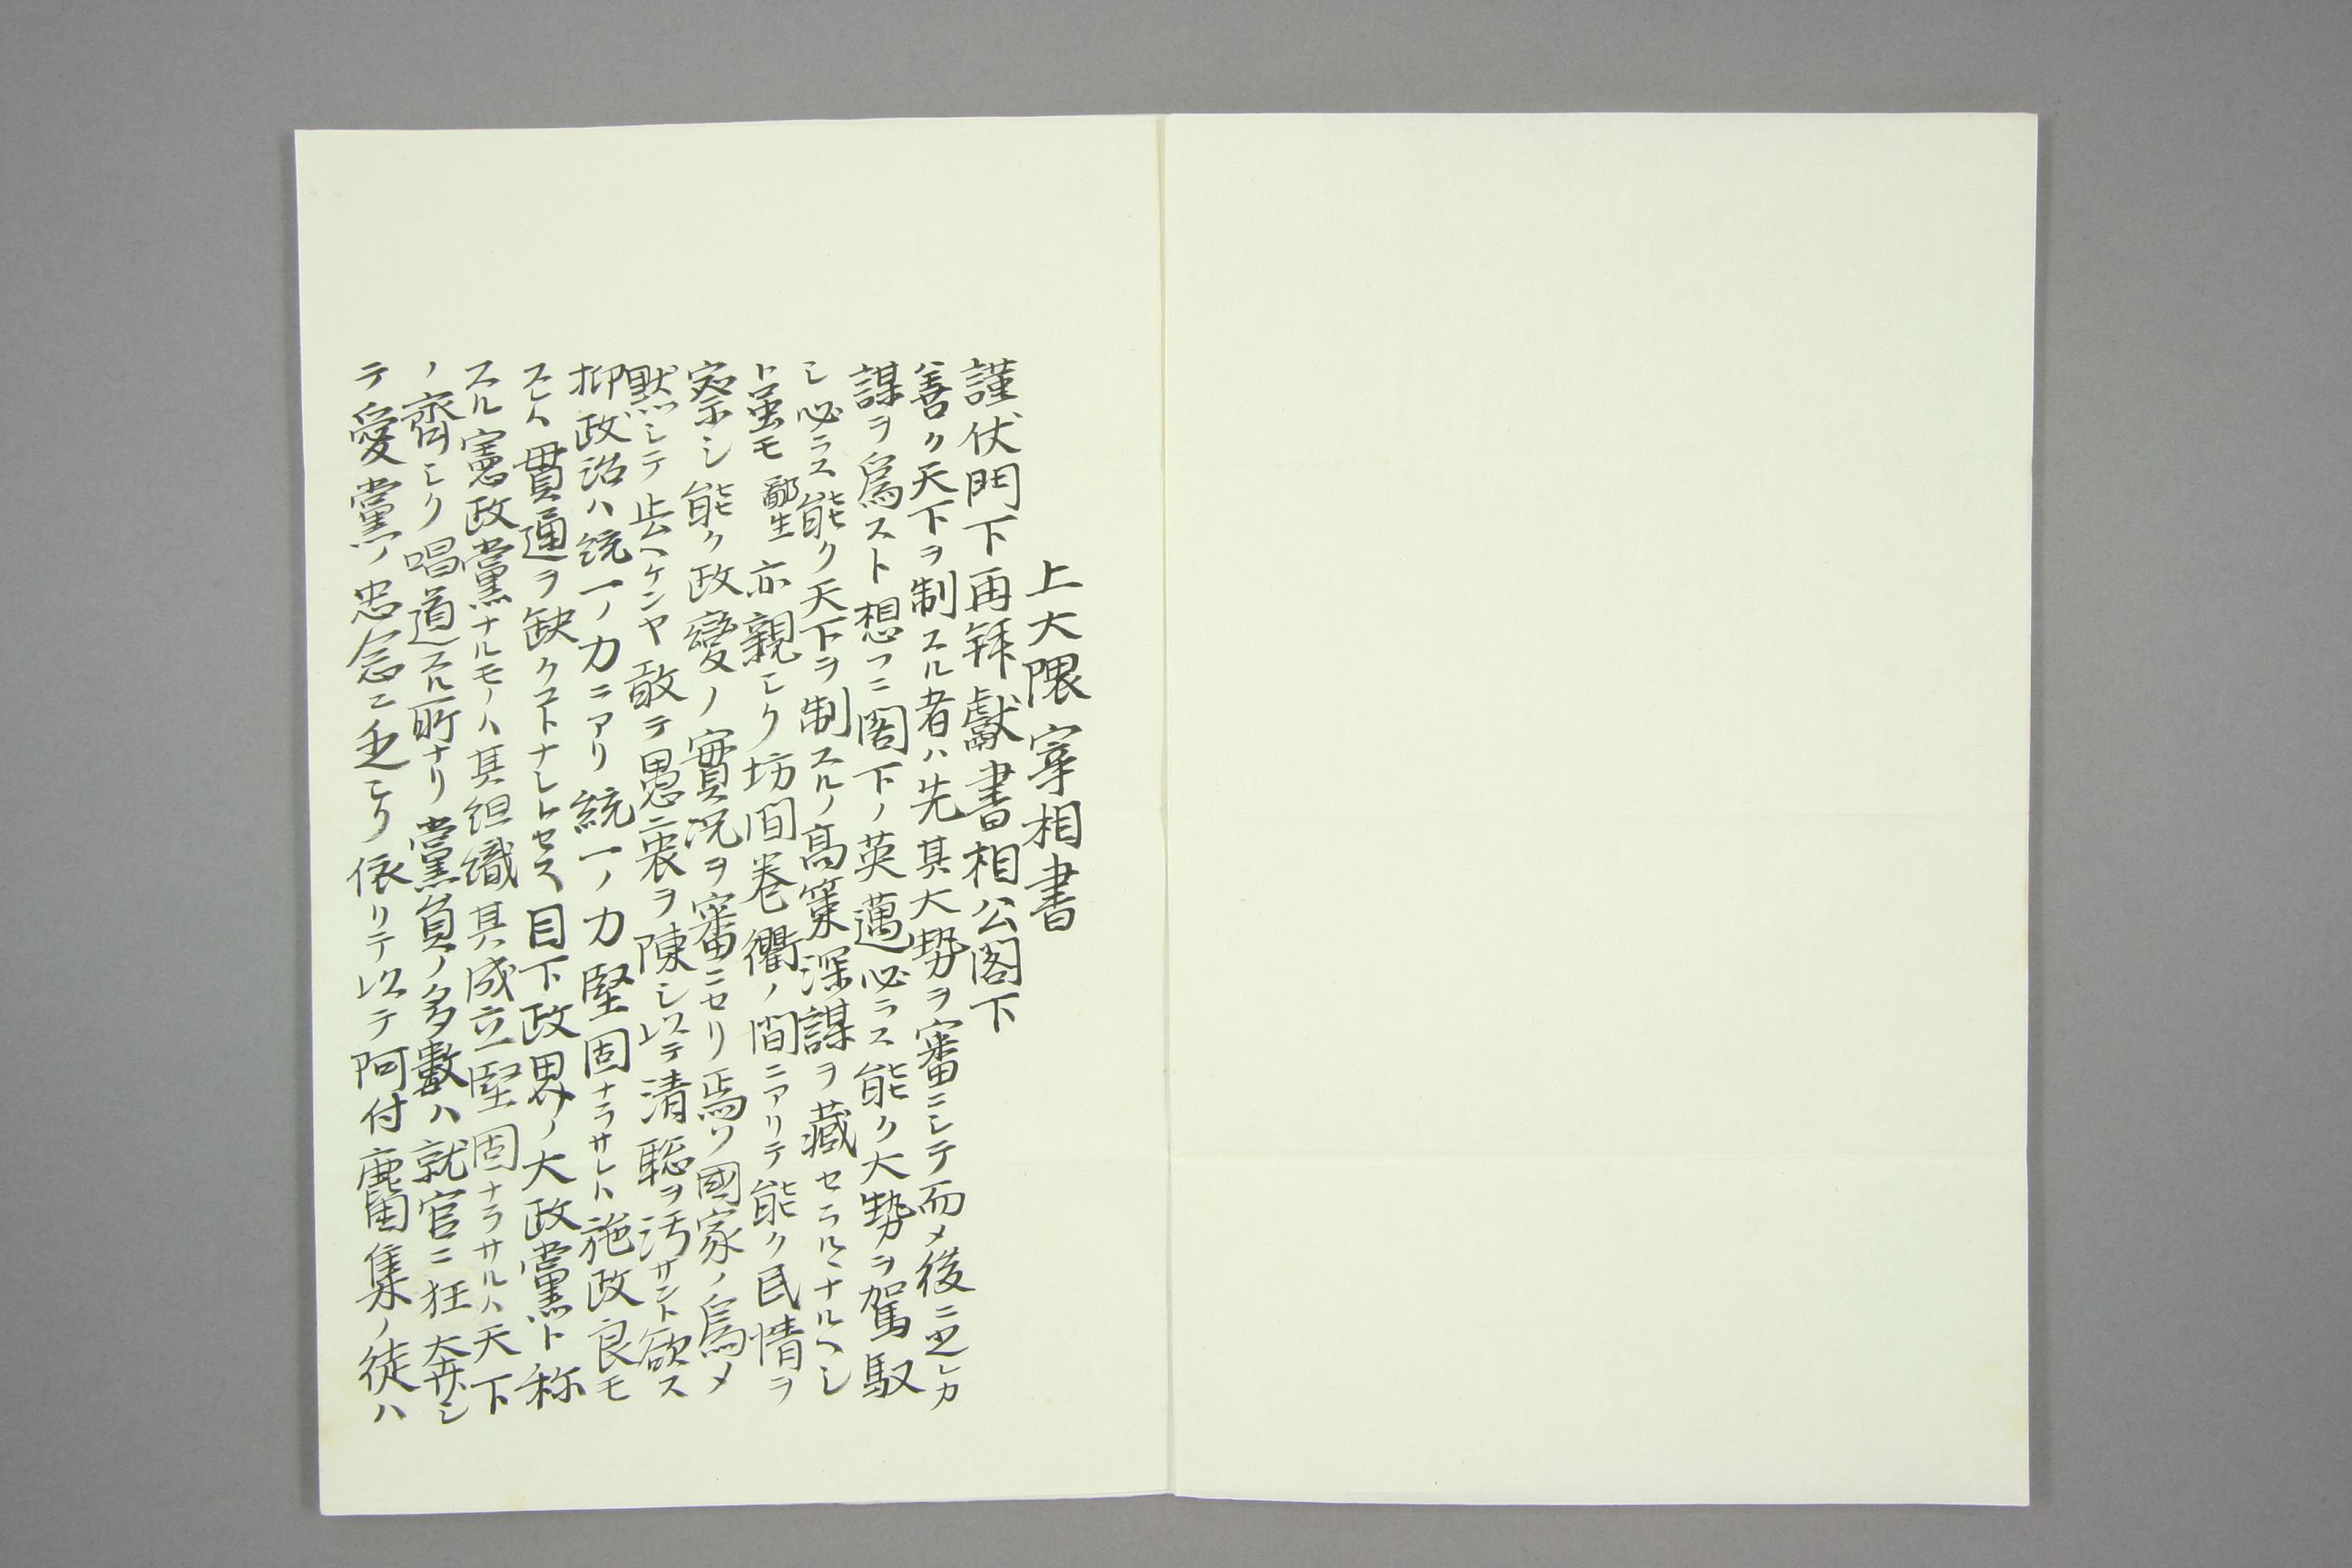 上大隈宰相書
謹伏門下再拜獻書相公閣下
善ク天下ヲ制スル者ハ先其大勢ヲ審ニシテ而メ後ニ之レカ
謀ヲ爲スト想フニ閣下ノ英邁必ラス能ク大勢ヲ駕馭
シ必ラス能ク天下ヲ制スルノ高策深謀ヲ藏セラルヽナルヘシ
ト虽モ鄙生亦親シク坊間巷衢ノ間ニアリテ能ク民情ヲ
察シ能ク政變ノ實況ヲ審ニセリ焉ソ國家ノ爲メ
默シテ止ムヘケンヤ敢テ愚衷ヲ陳シ以テ清聡ヲ汚サント欲ス
抑政治ハ統一ノ力ニアリ統一ノ力堅固ナラサレハ施政良モ
スレハ貫通ヲ缺クコトナシトセス目下政界ノ大政黨ト称
スル憲政黨ナルモノハ其組織其成立堅固ナラサルハ天下
ノ齊シク唱道スル所ナリ黨負ノ多數ハ就官ニ狂奔シ
テ愛黨ノ忠念ニ乏シク依リテ以テ阿付麕集ノ徒ハ